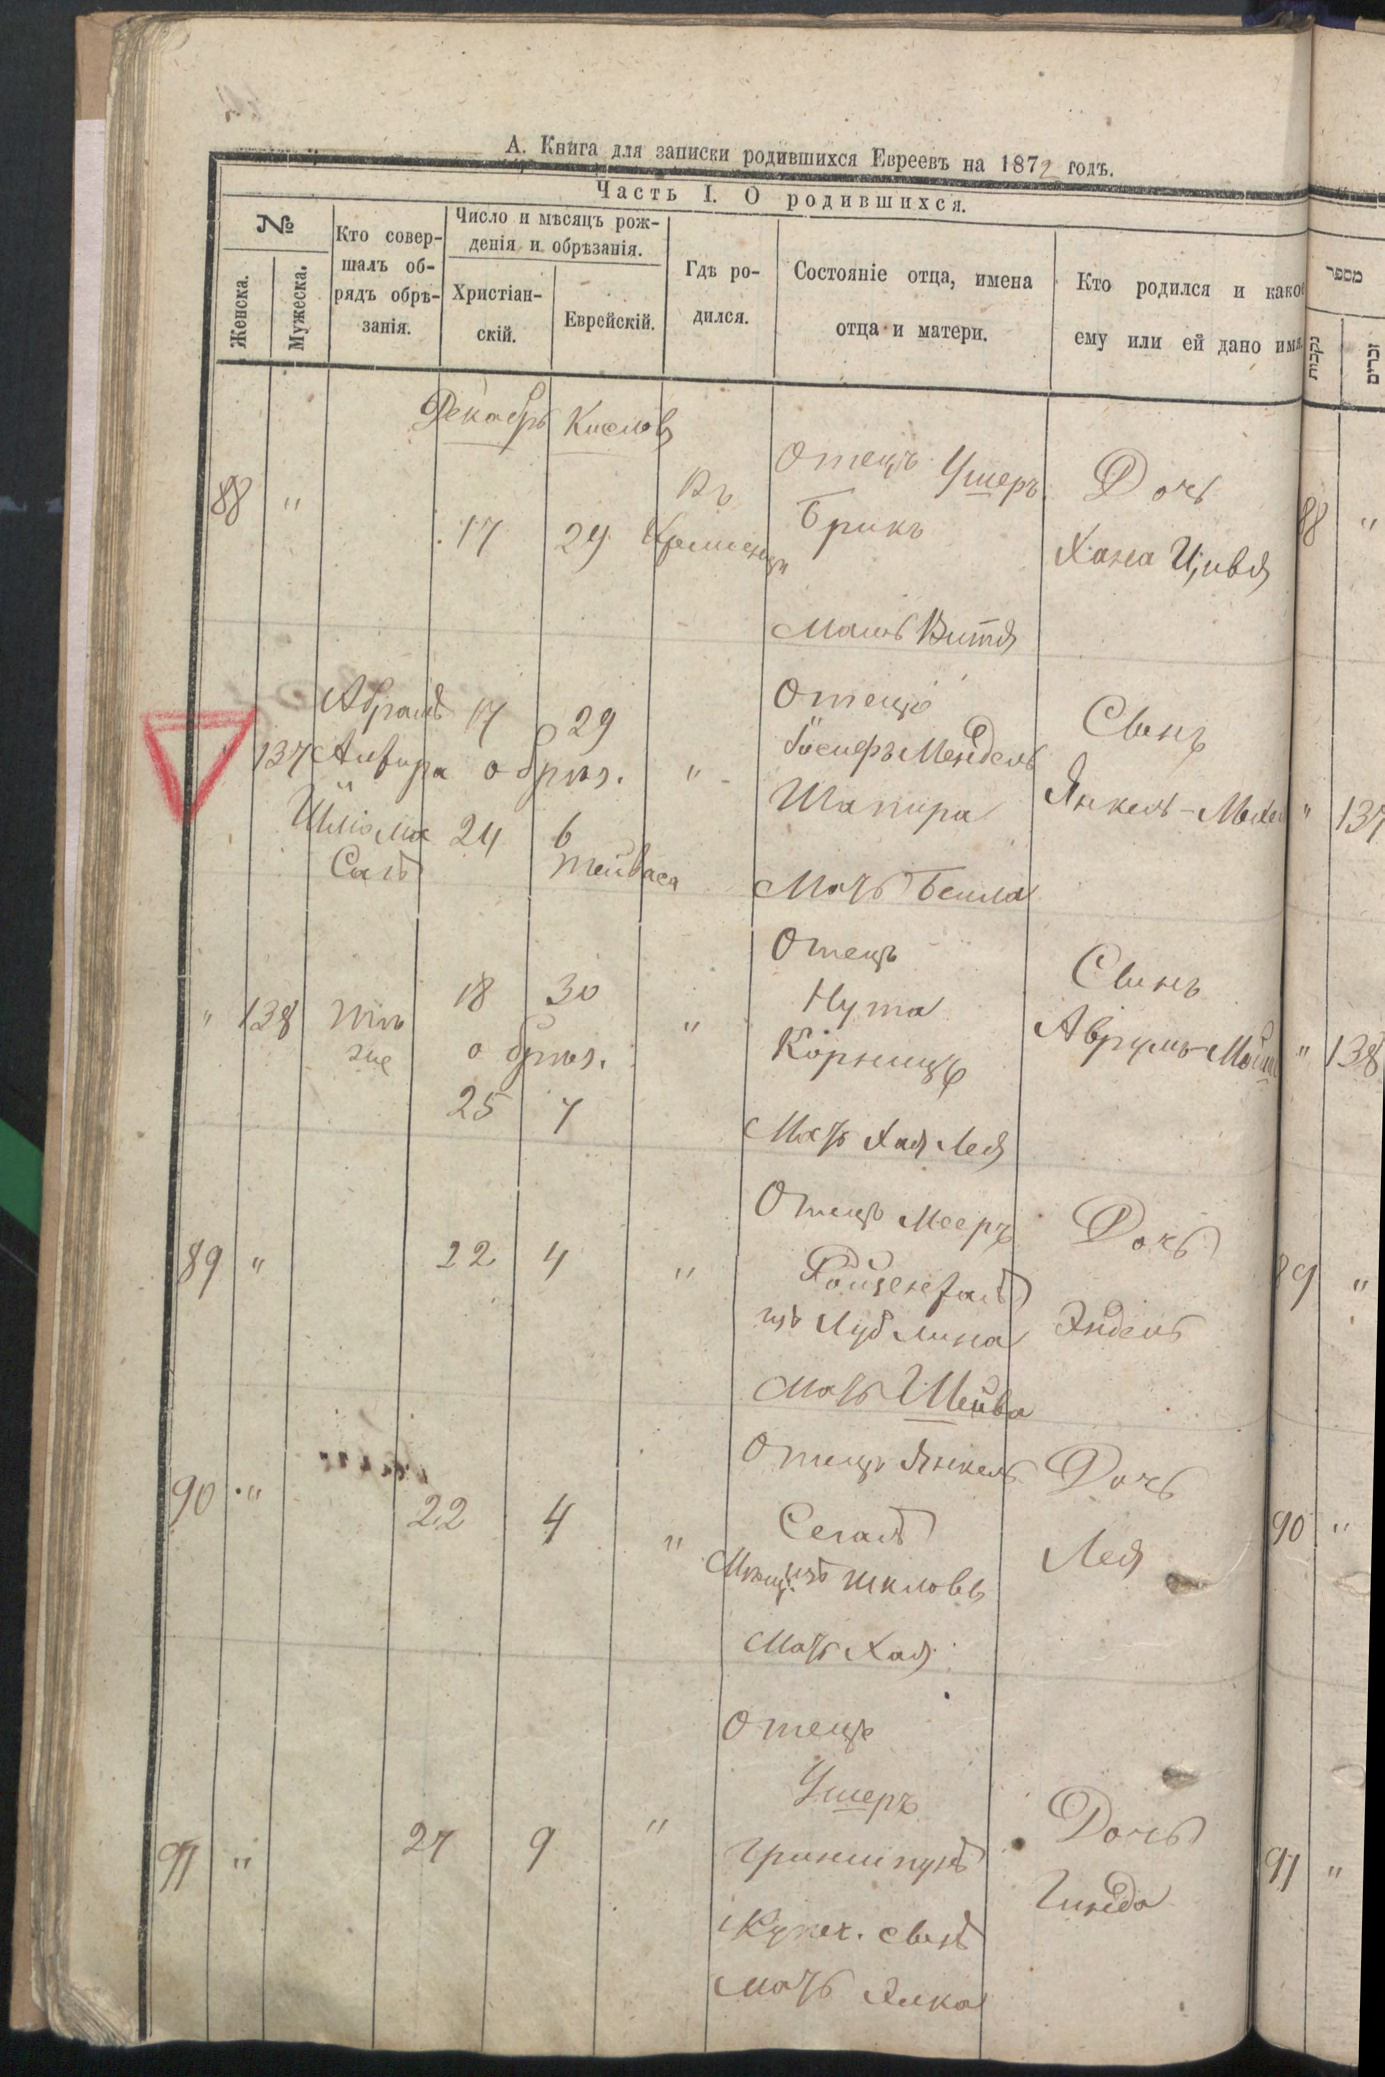 А. Книга для записки родившихся Евреевъ на 1872 годъ.
Часть I. О родившихся.
№
Женска.
Мужеска.
Кто совер-
шалъ об-
рядъ обрѣ-
занія.
Число и мѣсяцъ рож-
денія и обрѣзанія.
Христіан-
скій.
Еврейскій.
Гдѣ ро-
дился.
Состояніе отца, имена
отца и матери.
Кто родился и какое
ему или ей дано имя.
מספר
נקבות
זכרים
Декабрь Кислов
88 "
17 29
Въ
Кременцѣ
Отецъ Ушеръ
Брикъ
Мать Витя
Дочь
Хана Цивья
88 "
" 137
Абрамъ
Шлiома
Саль
17 29
обрѣз.
24 6
тейваса
"
Отецъ
Іосифъ Мендель
Шапира
Мать Бейла
Сынъ
Янкель-
" 137
" 138
тотъ
же
18 30
обрѣз.
25 7
"
Отецъ
Нута
Корницъ
Мать Хая Лея
Сынъ
Аврумъ-
" 138
89 "
22 4
"
Отецъ Мееръ
изъ Люблина
Мать Шейва
Дочь
Эйдель
89 "
90 "
22 4
"
Отецъ Янкель
Сегаль
изъ Шклова
Мать Хая
Дочь
Лея
90 "
91 "
27 9
"
Отецъ
Ушеръ
Гринштунъ
Купеч. сынъ
Мать Элка
Дочь
Гинда
91 "